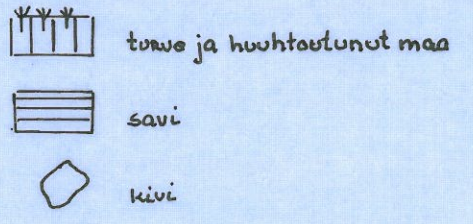 turve ja huuhtoutunut maa
savi
kivi